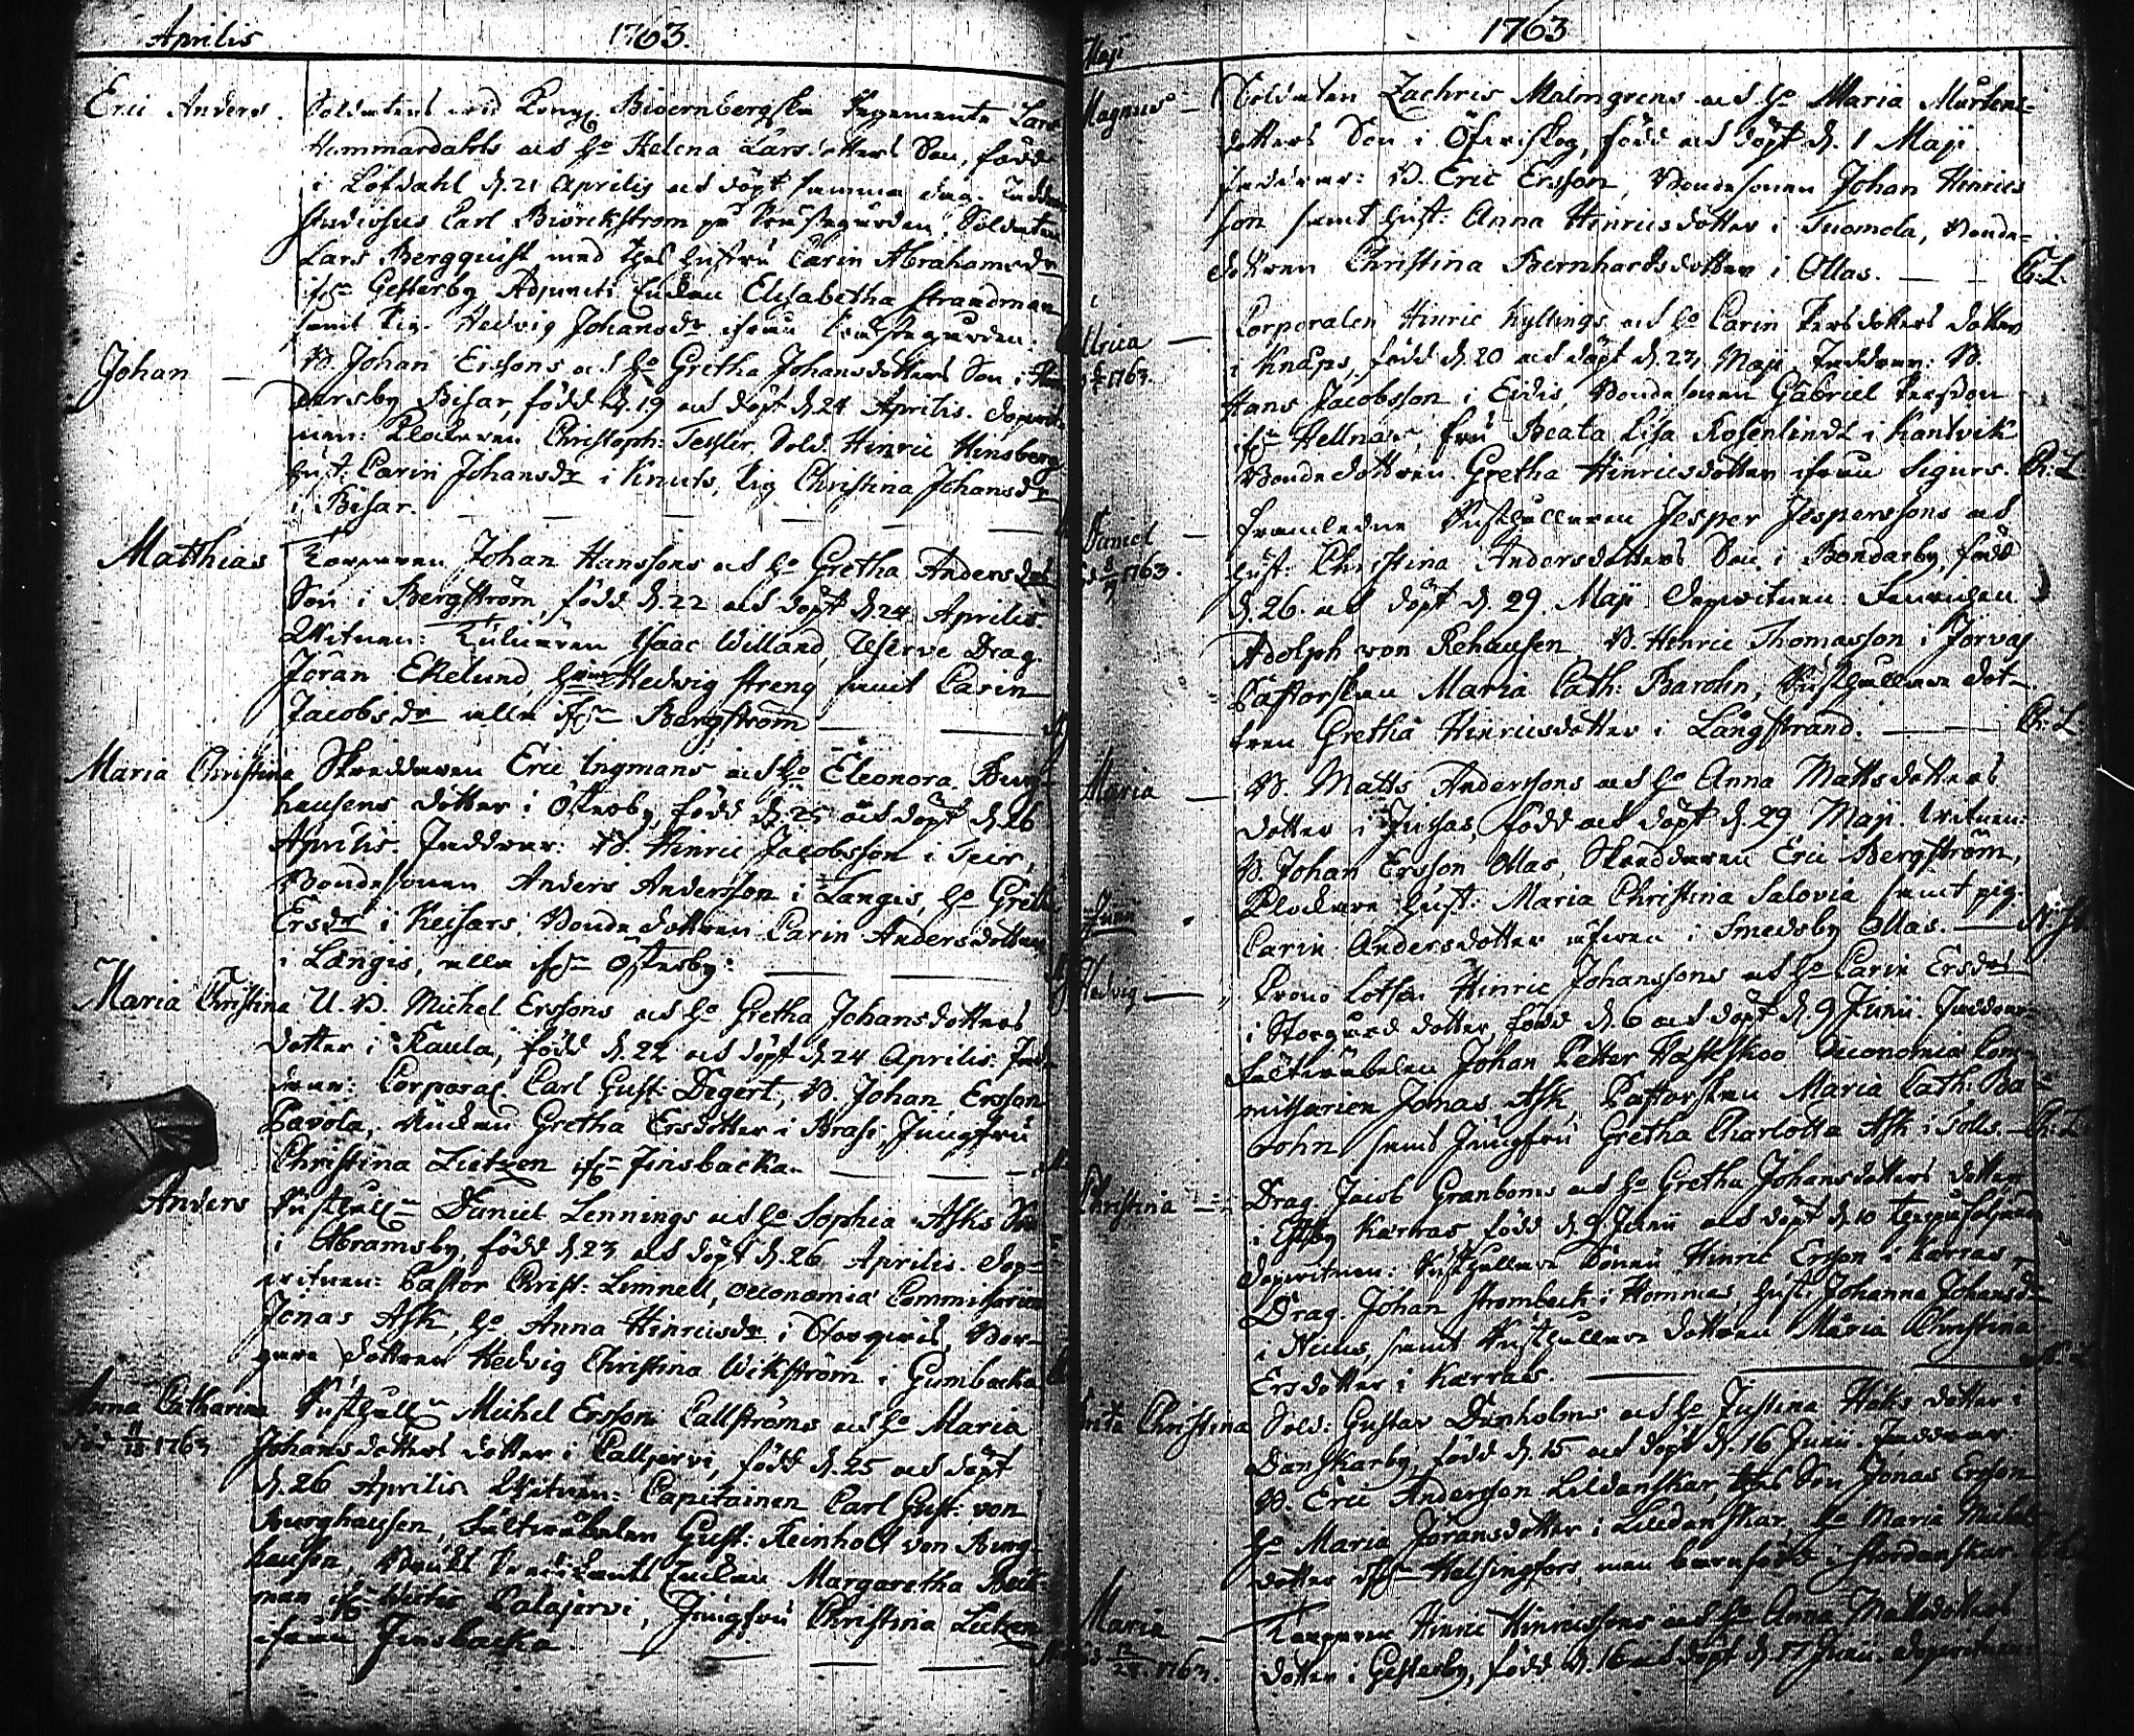 Aprilis 1763.
Eric Anders. Soldatens wid Kongl. Biörnbergska Regemente Lars
Hammardahls och Ho Helena Larsdotters Son, född
i Löfdahl d. 21 Aprilis och döpt samma dag. Faddrar
Studiosus Carl Biörckstrom på Soldaten
Lars Bergquist med thes hustru Carin Abrahamsdr
ifrn Gesterby Adjuncts Enckan Elisabetha Strandman
samt Pig. Hedwig Johansdr ifrån
Johan — B. Johan Erssons och Ho Gretha Johansdotters Son i
Dersby Bisar, född d. 19 och döpt d. 24 Aprilis. Dopwit
nen: Klockaren Christoph: Tesler, Sold. Hinric Hinsberg
Hust. Carin Johansdr i Knuts, Pig. Christina Johansdr
i Bisar.
Matthias Torparen Johan Hanssons och Ho Gretha Andersdrs
Son i Bergström, född d. 22 och döpt d. 24 Aprilis
Witnen: Isaac Willand, Reserve Drag.
Jöran Ekelund, Hedvig Streng samt Carin
Jacobsdr alla ifrn Bergström
Maria Christina Skreddaren Eric Ingmans och Ho Eleonora Burg-
hausens dotter i Österby, född d. 25 och döpt d. 26
Aprilis. Faddrar: B. Hinric Jacobsson i Teir,
Bondesonen Anders Andersson i Langis, Ho Gretha
Ersdr i Keisars, Bondedottren Carin Andersdotter
i Langis, alla ifrn Österby:
Maria Christina U. B. Michel Erssons och Ho Gretha Johansdotters
dotter i Kaula, född d. 22 och döpt d. 24 Aprilis: Fad-
drar: Corporal Carl Gust: Degert, B. Johan Ersson
Pavola, Enckan Gretha Ersdotter i Brasi, Jungfru
Christina Lietzen ifrn Finsbacka.
Anders Rusthålln Daniel Lennings och Ho Sophia Asks Son
i Abramsby, född d. 23 och döpt d. 26 Aprilis. Dop-
witnen: Pastor Christ: Limnell, oeconomiæ Commissarien
Jonas Ask, Ho Anna Hinricsdr i Storgård, Bor-
gare dottren Hedvig Christina Wikström i Gumbacka
Anna Catharina Rusthålln Michel Ersson Callströms och Ho Maria
död 11/18 1763 Johansdotters dotter i Calljervi, född d. 25 och döpt
d. 26 Aprilis Witnen: Capitainen Carl Gust: von
Burghausen, Gust: Reinhold von Burg-
hausen, Enckan Margaretha Beck-
man ifrn Palajervi, Jungfru Christina Lietzen
ifrån Finsbacka.
Maji 1763
Magnus — Soldaten Zachris Malmgrens och Ho Maria Mårtens-
dotters Son i Öfwerskog, född och döpt d. 1 Maji
Faddrar: B. Eric Ersson, Bondesonen Johan Hinrics
son samt Hust: Anna Hinricsdotter i Tuomola, Bonde-
dottren Christina Bernhardsdotter i Ollas. — C: L.
Ulrica — Corporalen Hinric Kyllings och Ho Carin Persdotters dotter
1763. i Knaps, född d. 20 och döpt d. 23 Maji. Faddrar: B.
Hans Jacobsson i Eidis, Bondesonen Gabriel Persson
ifrn Hellnas, fru Beata Lisa Rosenlindt i Kantvik
Bondedottren Gretha Hinricsdotter ifrån Sigurs. C: L
Daniel — Framledne Rusthållaren Jesper Jesperssons och
1763. Hust: Christina Andersdotters Son i Bondarby, född
d. 26. och döpt d. 29. Maji Dopwitnen: Fenrichen
Adolph von Rehausen, B. Henric Thomasson i Jorvas
Pastorskan Maria Cath: Barohn, Rusthållare dot-
tren Gretha Hinricsdotter i Långstrand. — C: L
Maria — B. Matts Anderssons och Ho Anna Mattsdotters
dotter i Jussas, född och döpt d. 29 Maji. Witnen:
B. Johan Ersson Ollas, Skreddaren Eric Bergström,
Klockare Hust: Maria Christina Salovia samt pig.
Junii Carin Andersdotter i Smedsby Ollas.
Hedvig — Crono Lotsen Hinric Johanssons och Ho Carin Ersdrs
i Storgård dotter, född d. 6 och döpt d. 9 Junii. Faddrar
Johan Petter Hästskoo Oeconomiæ Com-
missarien Jonas Ask, Pastorskan Maria Cath: Ba-
rohn samt Jungfru Gretha Charlotta Ask i Tolls. — C: L
Christina — Drag. Jacob Granboms och Ho Gretha Johansdotters dotter
i Estby Karras född d. 9 Junii och döpt d. 10
Dopwitnen: Rusthållare Sonen Hinric Ersson i Karras,
Drag. Johan Strombeck i Hommas, Hust: Johanna Johansdr
i Nims, samt Rusthållare dottren Maria Christina
Ersdotter i Karraes.
Christina Sold: Gustav Danholms och Ho Justina Höks dotter i
Danskarby, född d. 15 och döpt d. 16 Junii. Faddrar
B. Eric Andersson Lildanskar, thes Son Jonas Ersson
Ho Maria Joransdotter i Lilldanskar, Ho Maria Michels
dotter ifrn Helsingfors, men barnfödd i Stordanskar
Maria — Torparen Hinric Hinricssons och Ho Anna Mattsdotters
död 12/24 1763. dotter i Gesterby, född d. 16 och döpt d. 17 Junii. Dopwitnen